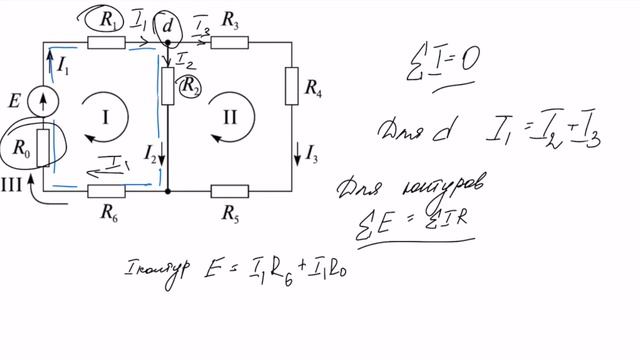 R₁ I₁ d I₃ R₃
I₁ I₂ R₂ R₄
E I II
R₀ I₂ I₃
III I₁
R₆ R₅
ΣI=0
Для d I₁ = I₂ + I₃
Для контуров
ΣE = ΣIR
I контур E = I₁R₆ + I₁R₀